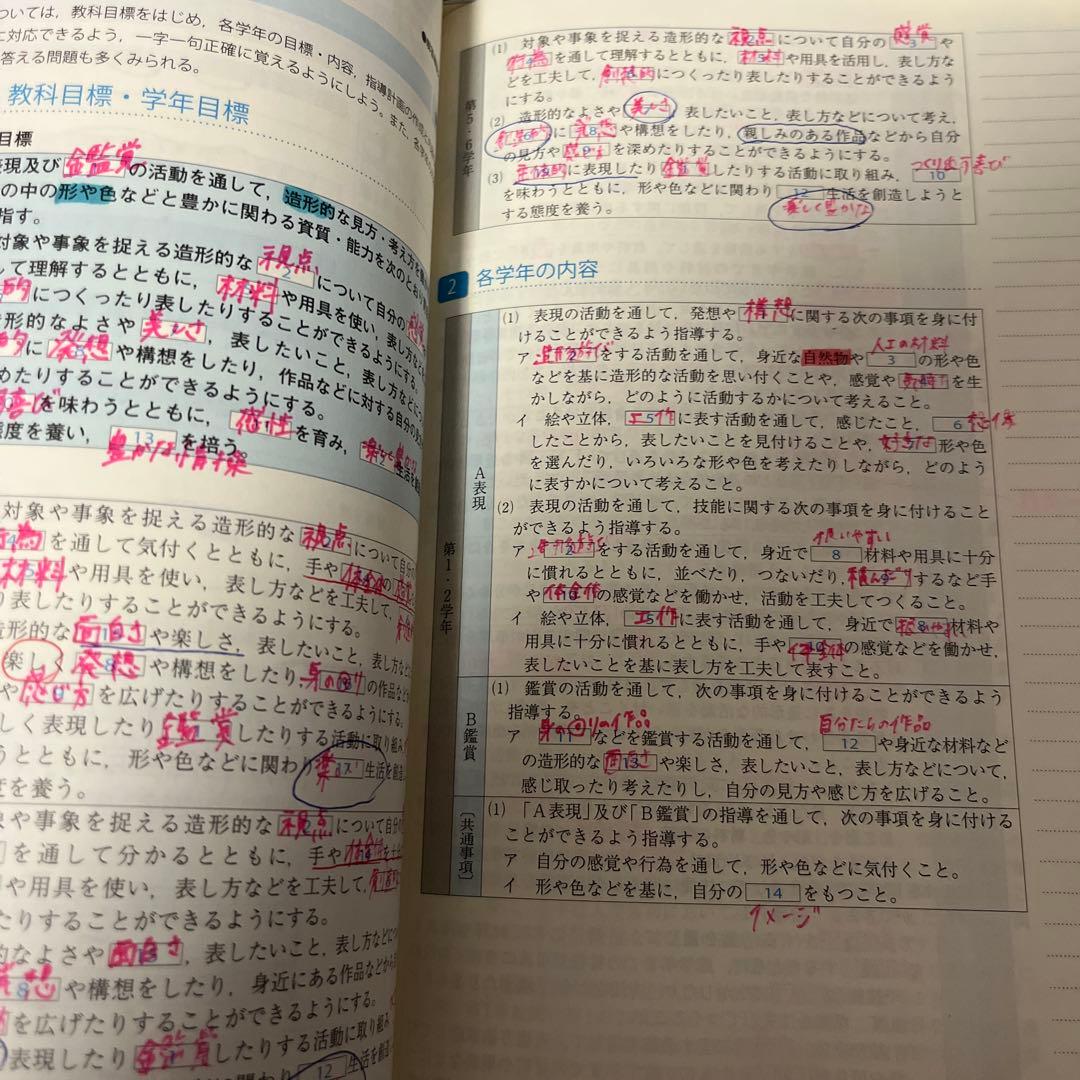 ついては，教科目標をはじめ，各学年の目標・内容，指導計画の作成
に対応できるよう，一字一句正確に覚えるようにしよう。また，
答える問題も多くみられる。
教科目標・学年目標
目標
表現及び鑑賞の活動を通して，造形的な見方・考え方を
の中の形や色などと豊かに関わる資質・能力を次のとおり
指す。
対象や事象を捉える造形的な視点について自分の
して理解するとともに，材料や用具を使い，表し方など
的につくったり表したりすることができるようにする。
造形的なよさや美しさ，表したいこと，表し方などに
的に発想や構想をしたり，作品などに対する自分の
めたりすることができるようにする。
喜びを味わうとともに，感性を育み，楽しく豊かな生活を
態度を養い，13を培う。
豊かな情操
対象や事象を捉える造形的な視点について自分
行為を通して気付くとともに，手や体全体の感覚
材料や用具を使い，表し方などを工夫して，
り表したりすることができるようにする。
造形的な面白さや楽しさ，表したいこと，表し方など
楽しく発想や構想をしたり，身の回りの作品など
や感じ方を広げたりすることができるようにする。
しく表現したり鑑賞したりする活動に取り組み
うとともに，形や色などに関わり楽しい生活を創造
度を養う。
象や事象を捉える造形的な視点について自分
を通して分かるとともに，手や体全体を十
や用具を使い，表し方などを工夫して，
たりすることができるようにする。
的なよさや面白さ，表したいこと，表し方など
発想や構想をしたり，身近にある作品などから
を広げたりすることができるようにする。
表現したり鑑賞したりする活動に取り組み
12生活を創造
第5・6学年
(1) 対象や事象を捉える造形的な視点について自分の感覚や
行為を通して理解するとともに，材料や用具を活用し，表し方な
どを工夫して，創造的につくったり表したりすることができるよう
にする。
(2) 造形的なよさや美しさ，表したいこと，表し方などについて考え，
創造的に発想や構想をしたり，親しみのある作品などから自分
の見方や感じ方を深めたりすることができるようにする。
(3) 主体的に表現したり鑑賞したりする活動に取り組み，10 つくりだす喜び
を味わうとともに，形や色などに関わり12生活を創造しようと
する態度を養う。
楽しく豊かな
2 各学年の内容
第1・2学年
A表現
(1) 表現の活動を通して，発想や構想に関する次の事項を身に付
けることができるよう指導する。
人工の材料
ア 造形遊びをする活動を通して，身近な自然物や3の形や色
などを基に造形的な活動を思い付くことや，感覚や気持ちを生
かしながら，どのように活動するかについて考えること。
イ 絵や立体，工作に表す活動を通して，感じたこと，6 想像
したことから，表したいことを見付けることや，好きな形や色
を選んだり，いろいろな形や色を考えたりしながら，どのよう
に表すかについて考えること。
(2) 表現の活動を通して，技能に関する次の事項を身に付けること
ができるよう指導する。
扱いやすい
ア 造形遊びをする活動を通して，身近で8材料や用具に十分
に慣れるとともに，並べたり，つないだり，積んだりするなど手
や体全体の感覚などを働かせ，活動を工夫してつくること。
イ 絵や立体，工作に表す活動を通して，身近で扱いやすい材料や
用具に十分に慣れるとともに，手や体全体の感覚などを働かせ，
表したいことを基に表し方を工夫して表すこと。
B鑑賞
(1) 鑑賞の活動を通して，次の事項を身に付けることができるよう
指導する。
身の回りの作品 自分たちの作品
ア 11などを鑑賞する活動を通して，12や身近な材料など
の造形的な面白さや楽しさ，表したいこと，表し方などについて，
感じ取ったり考えたりし，自分の見方や感じ方を広げること。
〔共通事項〕
(1) 「A表現」及び「B鑑賞」の指導を通して，次の事項を身に付ける
ことができるよう指導する。
ア 自分の感覚や行為を通して，形や色などに気付くこと。
イ 形や色などを基に，自分の14をもつこと。
イメージ